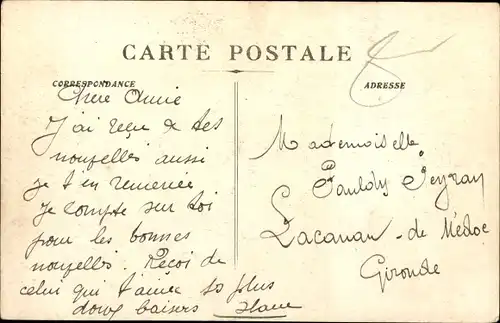 CARTE POSTALE
CORRESPONDANCE
Chère Amie
J'ai reçu de tes
nouvelles aussi
je t'en remercie
Je compte sur toi
pour les bonnes
nouvelles. Reçoi de
celui qui t'aime plus
doux baisers
ADRESSE
Mademoiselle
Peyran
Lacanau-de Médoc
Gironde